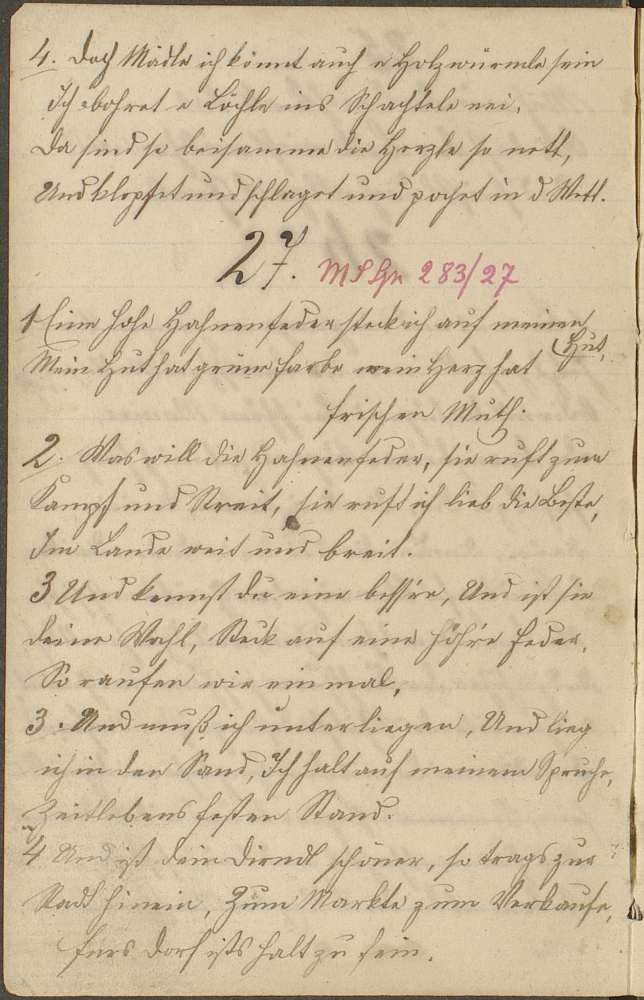 4. Doch Mädle ich könnt auch e Holzwürmle sein
Ich bohret e Löchle ins Schachtele nei,
Da sind se beisamme die Herzle so nett,
Und klopfet und schlaget und pochet in d Wett.
27. MSGr 283/27
1 Eine hohe Hahnenfeder steck ich auf meinen
Hut,
Mein Hut hat grüne Farbe mein Herz hat
frischen Muth.
2. Was will die Hahnenfeder, sie ruft zum
Kampf und Streit, sie ruft ich lieb die Beste,
Im Lande weit und breit.
3 Und kennst du eine bess're, Und ist sie
deine Wahl, Steck auf eine höh're Feder,
So raufen wir einmal,
3. Und muß ich unterliegen, Und lieg
ich in den Sand, Ich halt auf meinem Spruche,
Zeitlebens festen Stand.
4 Und ist dein Dirndl schöner, so trags zur
Stadt hinein, Zum Markte zum Verkaufe,
fürs Dorf ists halt zu fein.